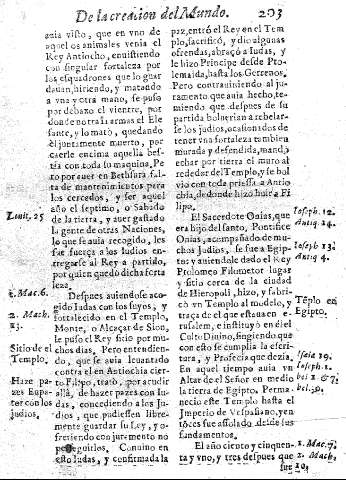 De la creacion del Mundo. 203
auia visto, que en vno de
aquellos animales venia el
Rey Antiocho, enuistiendo
con singular fortaleza por
los esquadrones que lo guar
dauan, hiriendo, y matando
a vna y otra mano, se puso
por debaxo el vientre, por
donde no traìa armas el Ele
fante, y lo matò, quedando
èl juntamente muerto, por
caerle encima aquella bes-
tia con toda su maquina. Pe
ro por auer en Bethsura fal-
ta de mantenimientos para
los cercados, y ser aquel
Leuit. 25
año el septimo, o Sabado
de la tierra, y auer gastado
la gente de otras Naciones,
lo que se auia recogido, les
fue fuerça a los Iudios en-
tregarse al Rey a partido,
por quien quedò dicha forta
leza.
1. Mac. 6.
Despues auiendose aco-
gido Iudas con los suyos, y
2. Mach.
fortalecido en el Templo,
13.
Monte, o Alcaçar de Sion,
le puso el Rey sitio por mu-
Sitio del
chos dias. Pero entendien-
Templo.
do, que se auia leuantado
contra el en Antiochia cier-
Haze pa-
to Filipo, tratò, por acudir
zes Eupa-
allà, de hazer pazes con Iu-
tor con los
das, concediendo a los Iu-
judios.
dios, que pudiessen libre-
mente guardar su Ley, y o-
freciendo con juramento no
perseguirlos. Conuino en
esto Iudas, y confirmada la
paz, entrò el Rey en el Tem
plo, sacrificò, y dio algunas
ofrendas, abraçò a Iudas, y
le hizo Principe desde Pto-
lemaida, hasta los Gerrenos.
Pero contrauiniendo al ju-
ramento que auia hecho, te-
miendo que despues de su
partida boluerian a rebelar-
se los judios, ocasionados de
tener vna fortaleza tambien
murada y defendida, mandò
echar por tierra el muro al
rededor del Templo, y se bol
viò con toda priessa a Antio
chia, de donde hizo huir a Fi
lipo.
El Sacerdote Onias, que
Ioseph. 12.
era hijo del santo, Pontifice
Antiq. 14.
Onias, acompañado de mu-
chos Iudios, se fue a Egip-
Ioseph. 13.
to, y auiendole dado el Rey
Antiq. 4.
Ptolomeo Filometor lugar
y sitio cerca de la ciudad
de Hieropoli, hizo, y fabri-
cò vn Templo al modelo, y
Tẽplo en
traça de el que estaua en Ie-
Egipto.
rusalem, e instituyò en èl el
Culto Diuino, fingiendo que
con esto se cumplia la escri-
tura, y Profecia que dezia.
Isaiæ 19.
En aquel tiempo aura vn
Ioseph. 1.
Altar de el Señor en medio
bel. & 7.
la tierra de Egipto. Perma-
neciò este Templo hasta el
Imperio de Vespasiano, y en
tõces fue assolado desde sus
fundamentos.
El año ciento y cinquen-
1. Mac. 7.
ta y vno, y tres despues que
2. Mach.
fue